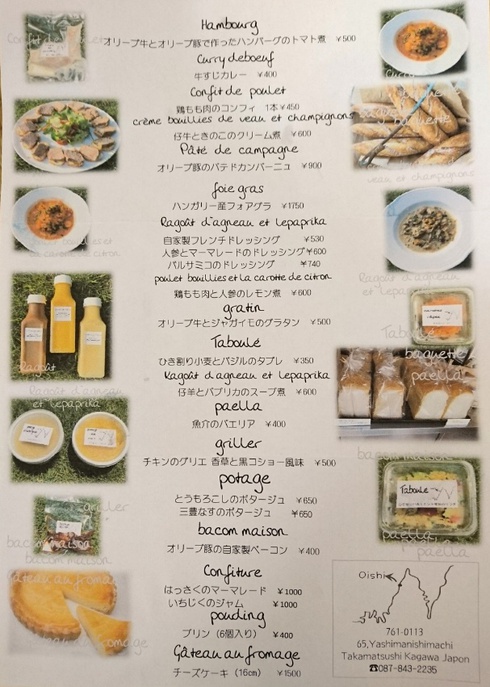 Hambourg
オリーブ牛とオリーブ豚で作ったハンバーグのトマト煮 ¥500
Curry deboeuf
牛すじカレー ¥400
Confit de poulet
鶏もも肉のコンフィ 1本¥450
crème bouillies de veau et champignons
仔牛ときのこのクリーム煮 ¥600
Pâté de campagne
オリーブ豚のパテドカンパーニュ ¥900
foie gras
ハンガリー産フォアグラ ¥1750
Ragoût d'agneau et lepaprika
自家製フレンチドレッシング ¥530
人参とマーマレードのドレッシング¥600
バルサミコのドレッシング ¥740
poulet bouillies et la carotte de citron
鶏もも肉と人参のレモン煮 ¥600
gratin
オリーブ牛とジャガイモのグラタン ¥500
Taboulé
ひき割り小麦とバジルのタブレ ¥350
Ragoût d'agneau et lepaprika
仔羊とパプリカのスープ煮 ¥600
paella
魚介のパエリア ¥400
griller
チキンのグリエ 香草と黒コショー風味 ¥500
potage
とうもろこしのポタージュ ¥650
三豊なすのポタージュ ¥650
bacom maison
オリーブ豚の自家製ベーコン ¥400
Confiture
はっさくのマーマレード ¥1000
いちじくのジャム ¥1000
pouding
プリン（6個入り） ¥400
Gâteau au fromage
チーズケーキ（16cm） ¥1500
Ragoût
Ragoût d'agneau
et lepaprika
griller
bacom maison
bacom maison
Gâteau au fromage
veau et champignons
Ragoût d'agneau
et lepaprika
Taboulé
baguette
paella
Taboulé
paella
Oishi
761-0113
65,Yashimanishimachi
Takamatsushi Kagawa Japon
☎087-843-2235